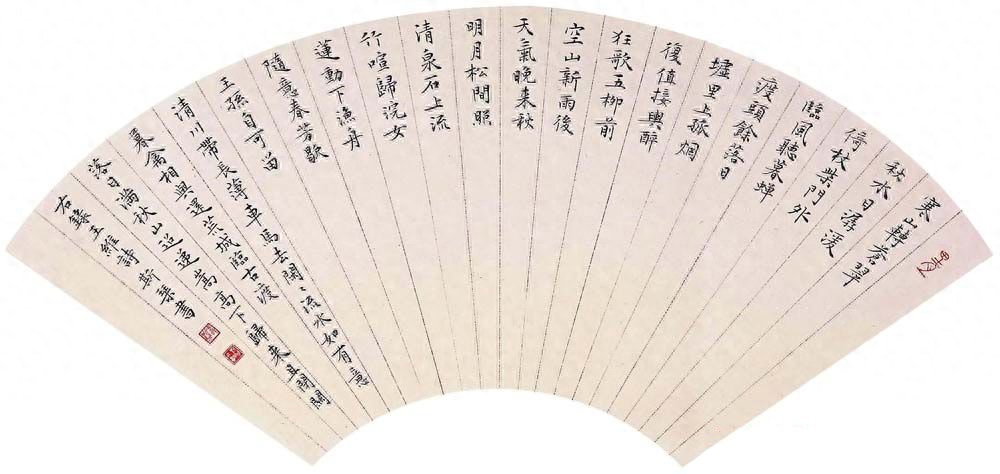 寒山轉蒼翠
秋水日潺湲
倚杖柴門外
臨風聽暮蟬
渡頭餘落日
墟里上孤烟
復值接輿醉
狂歌五柳前
空山新雨後
天氣晚来秋
明月松間照
清泉石上流
竹喧歸浣女
蓮動下漁舟
隨意春芳歇
王孫自可留
清川帶長薄車馬去閑〻流水如有意
暮禽相與還荒城臨古渡
落日滿秋山迢遞嵩高下歸来且閉關
右錄王維詩斯琴書